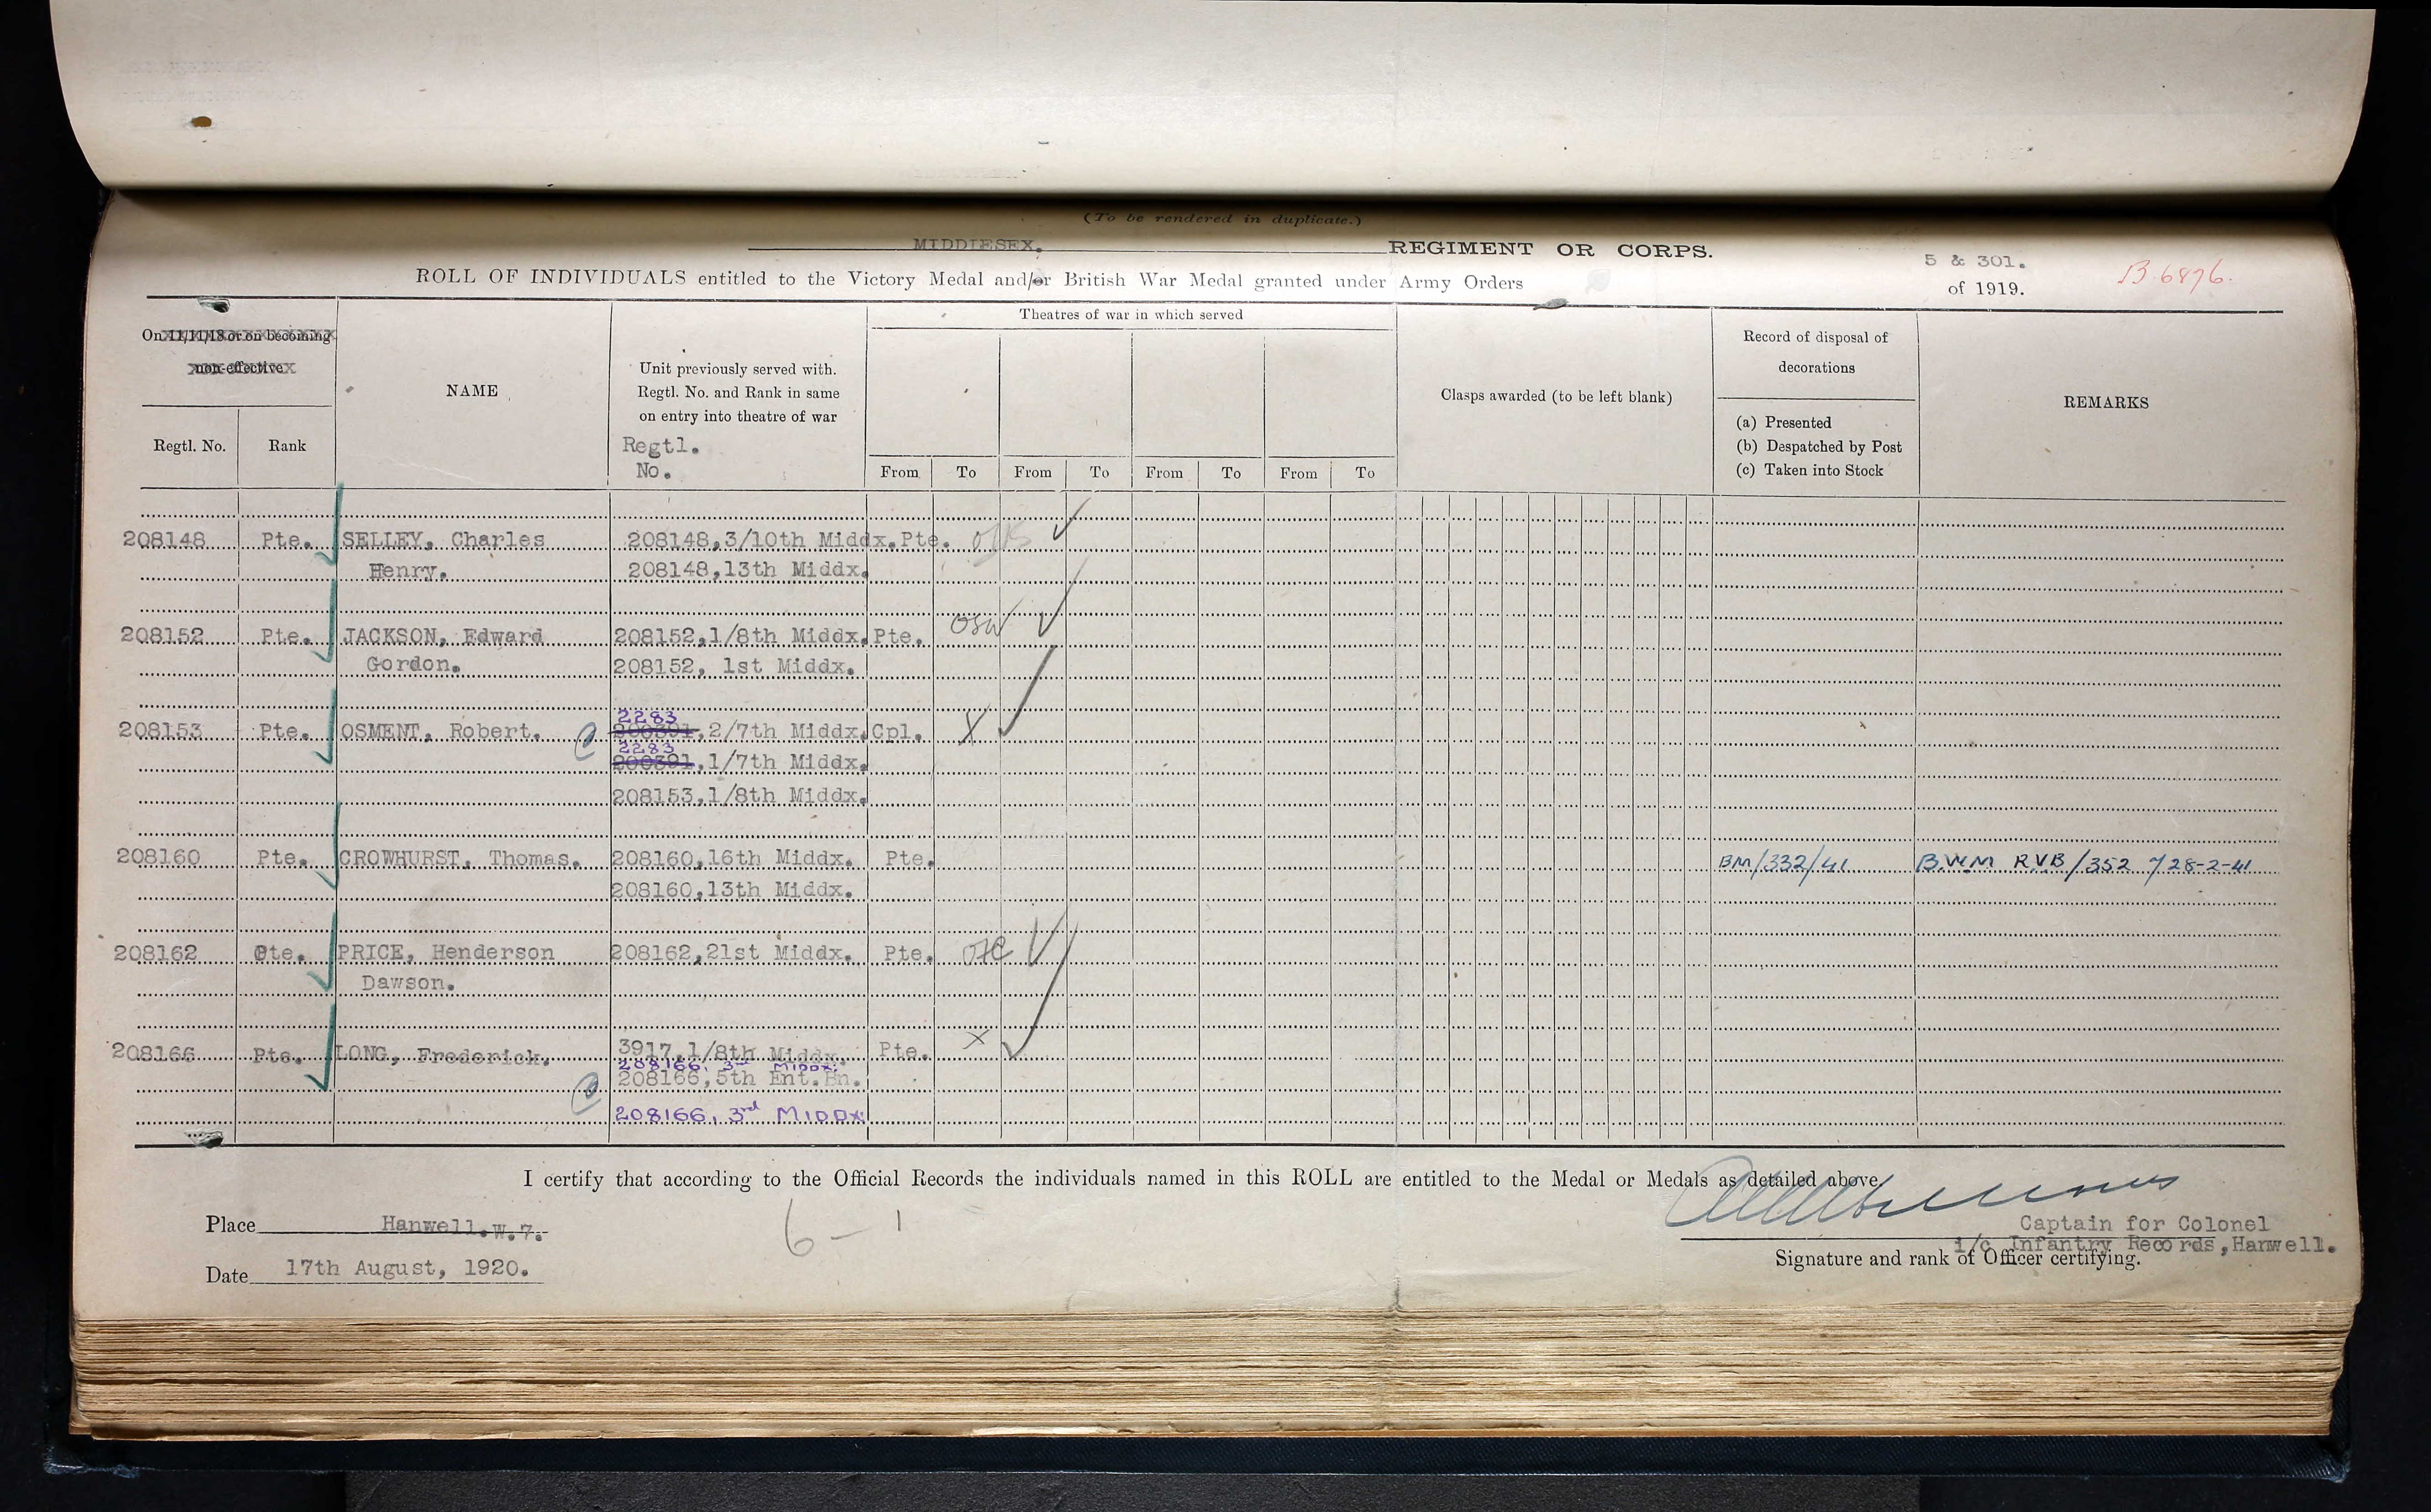 (To be rendered in duplicate.)
MIDDLESEX. REGIMENT OR CORPS.
5 & 301.
B.6876.
ROLL OF INDIVIDUALS entitled to the Victory Medal and/or British War Medal granted under Army Orders of 1919.
On 11/11/18 or on becoming
non-effective
Regtl. No. Rank
NAME
Unit previously served with.
Regtl. No. and Rank in same
on entry into theatre of war
Regtl.
No.
Theatres of war in which served
From To From To From To From To
Clasps awarded (to be left blank)
Record of disposal of
decorations
(a) Presented
(b) Despatched by Post
(c) Taken into Stock
REMARKS
208148 Pte. SELLEY, Charles 208148,3/10th Middx.Pte.
Henry. 208148,13th Middx.
208152 Pte. JACKSON, Edward 208152,1/8th Middx.Pte. OSW
Gordon. 208152, 1st Middx.
2283
208153 Pte. OSMENT, Robert. 200391,2/7th Middx.Cpl. X
2283
200391,1/7th Middx.
208153,1/8th Middx.
208160 Pte. CROWHURST, Thomas. 208160,16th Middx. Pte. BM/332/41 B.W.M RVB/352 28-2-41
208160,13th Middx.
208162 Pte. PRICE, Henderson 208162,21st Middx. Pte.
Dawson.
208166 Pte. LONG, Frederick. 3917,1/8th Middx. Pte. X
208166, 3rd MIDDX.
208166,5th Ent.Bn.
208166, 3rd MIDDX.
I certify that according to the Official Records the individuals named in this ROLL are entitled to the Medal or Medals as detailed above
Place Hanwell.W.7.
6-1
Captain for Colonel
i/c Infantry Records,Hanwell.
Signature and rank of Officer certifying.
Date 17th August, 1920.